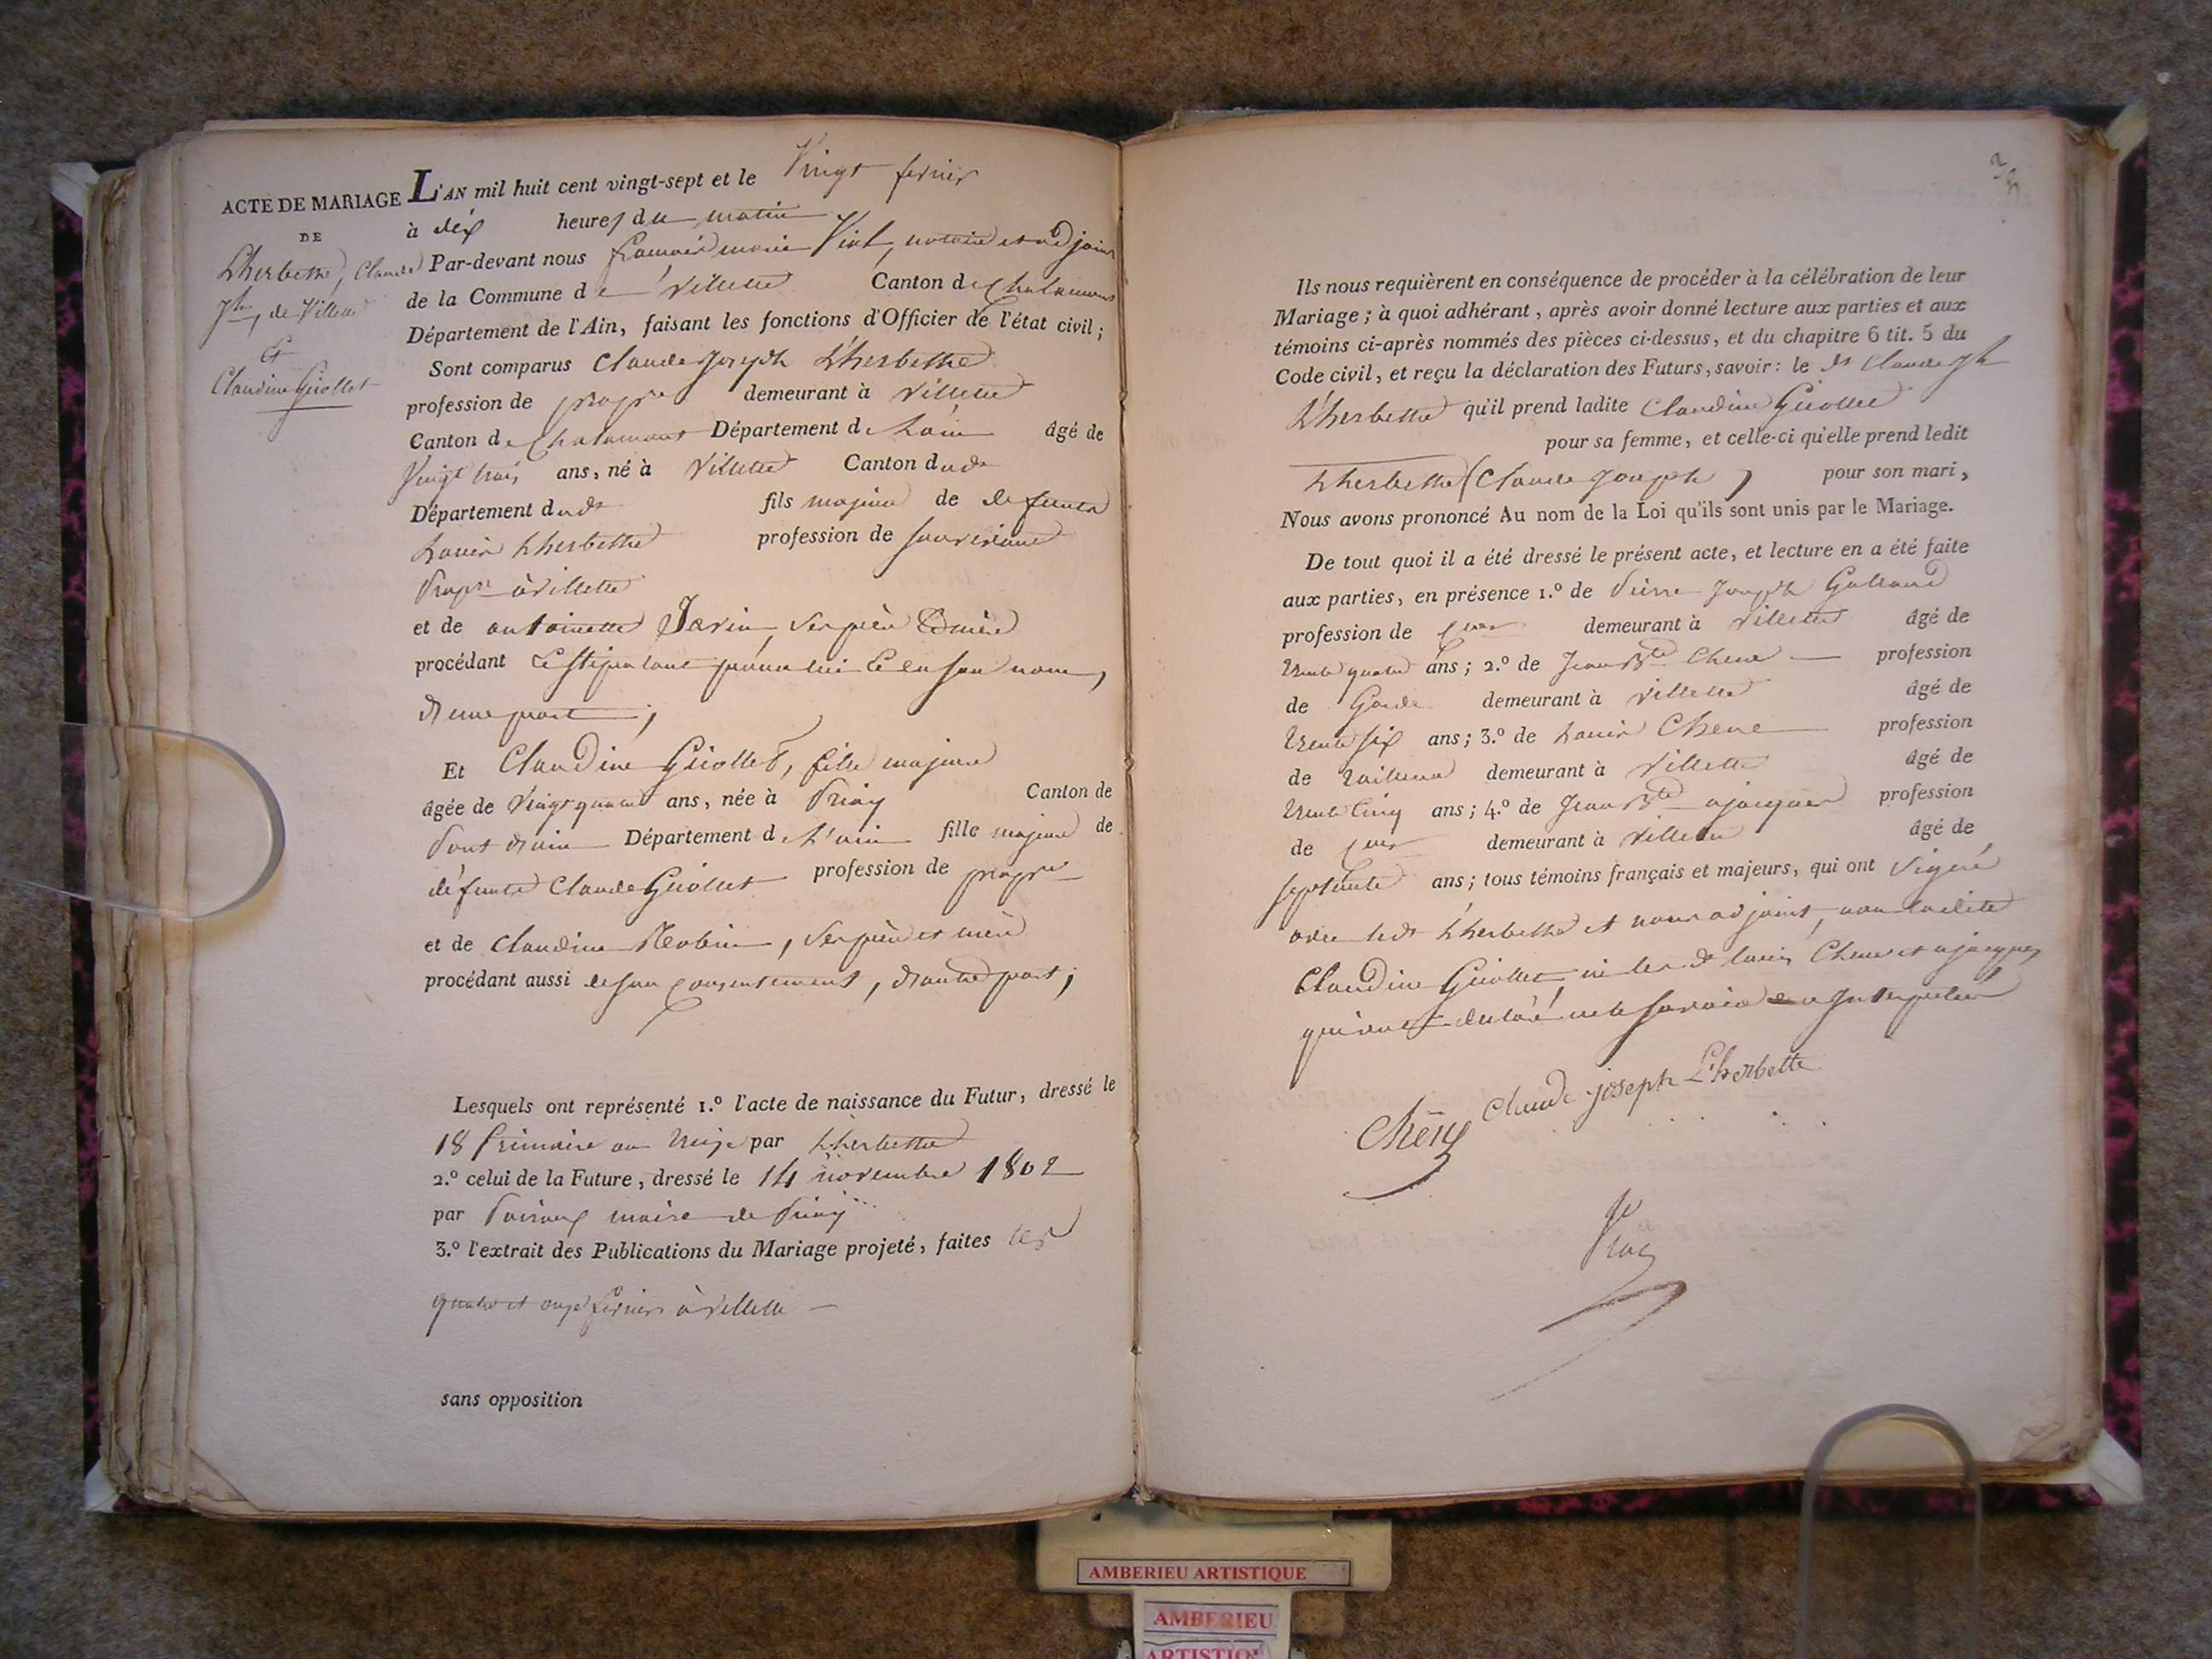 ACTE DE MARIAGE
DE
Lherbette, Claude
Jph, de Villette
Et
Claudine Giollet
L'AN mil huit cent vingt-sept et le Vingt fevrier
à dix heures du matin
Par-devant nous françois marie Vial, notaire et adjoint
de la Commune de Villette Canton de Chalamont
Département de l'Ain, faisant les fonctions d'Officier de l'état civil ;
Sont comparus Claude Joseph Lherbette
profession de propre demeurant à Villette
Canton de Chalamont Département de Lain âgé de
Vingt trois ans, né à Villette Canton dudt
Département dudt fils majeur de defunts
Louis Lherbette profession de
Propre à Villette
et de antoinette Savin, Ses père & mère
procédant & stipulant pour lui & en son nom,
d'une part ;
Et Claudine Giollet, fille majeure
âgée de Vingt quatre ans, née à Priay Canton de
Pont d'ain Département de L'ain fille majeure de
défunts Claude Giollet profession de propre
et de Claudine Robin, Ses père et mère
procédant aussi de son consentement, d'autre part ;
Lesquels ont représenté 1.º l'acte de naissance du Futur, dressé le
18 frimaire an Treize par Lherbette
2.º celui de la Future, dressé le 14 novembre 1802
par maire de Priay
3.º l'extrait des Publications du Mariage projeté, faites les
quatre et onze fevrier à Villette
sans opposition
Ils nous requièrent en conséquence de procéder à la célébration de leur
Mariage ; à quoi adhérant, après avoir donné lecture aux parties et aux
témoins ci-après nommés des pièces ci-dessus, et du chapitre 6 tit. 5 du
Code civil, et reçu la déclaration des Futurs, savoir : le dt Claude Jph
Lherbette qu'il prend ladite Claudine Giollet
pour sa femme, et celle-ci qu'elle prend ledit
Lherbette (Claude Joseph) pour son mari,
Nous avons prononcé Au nom de la Loi qu'ils sont unis par le Mariage.
De tout quoi il a été dressé le présent acte, et lecture en a été faite
aux parties, en présence 1.º de Pierre Joseph
profession de demeurant à Villette âgé de
trente quatre ans ; 2.º de Jean Bte Chene profession
de Garde demeurant à Villette âgé de
trente six ans ; 3.º de Louis Chene profession
de tailleur demeurant à Villette âgé de
trente cinq ans ; 4.º de Jean Bte ajacques profession
de demeurant à Villette âgé de
septante ans ; tous témoins français et majeurs, qui ont Signé
avec ledt Lherbette et nous adjoint, non ladite
Claudine Giollet, ni les dt Louis Chene et ajacques
qui ont déclaré ne le savoir Interpellés
Claude joseph L'herbette
Chêne
Vial
AMBERIEU ARTISTIQUE
AMBERIEU
ARTISTIQUE